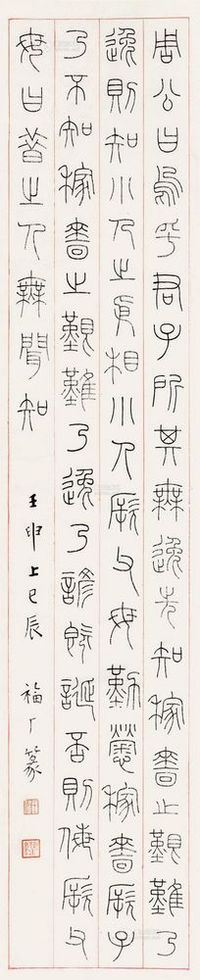 周公曰烏乎君子所其無逸先知稼嗇之艱難乃
逸則知小人之依相小人厥父母勤勞稼嗇厥子
乃不知稼嗇之艱難乃逸乃諺既誕否則侮厥父
母曰昔之人無聞知
壬申上巳辰
福厂篆